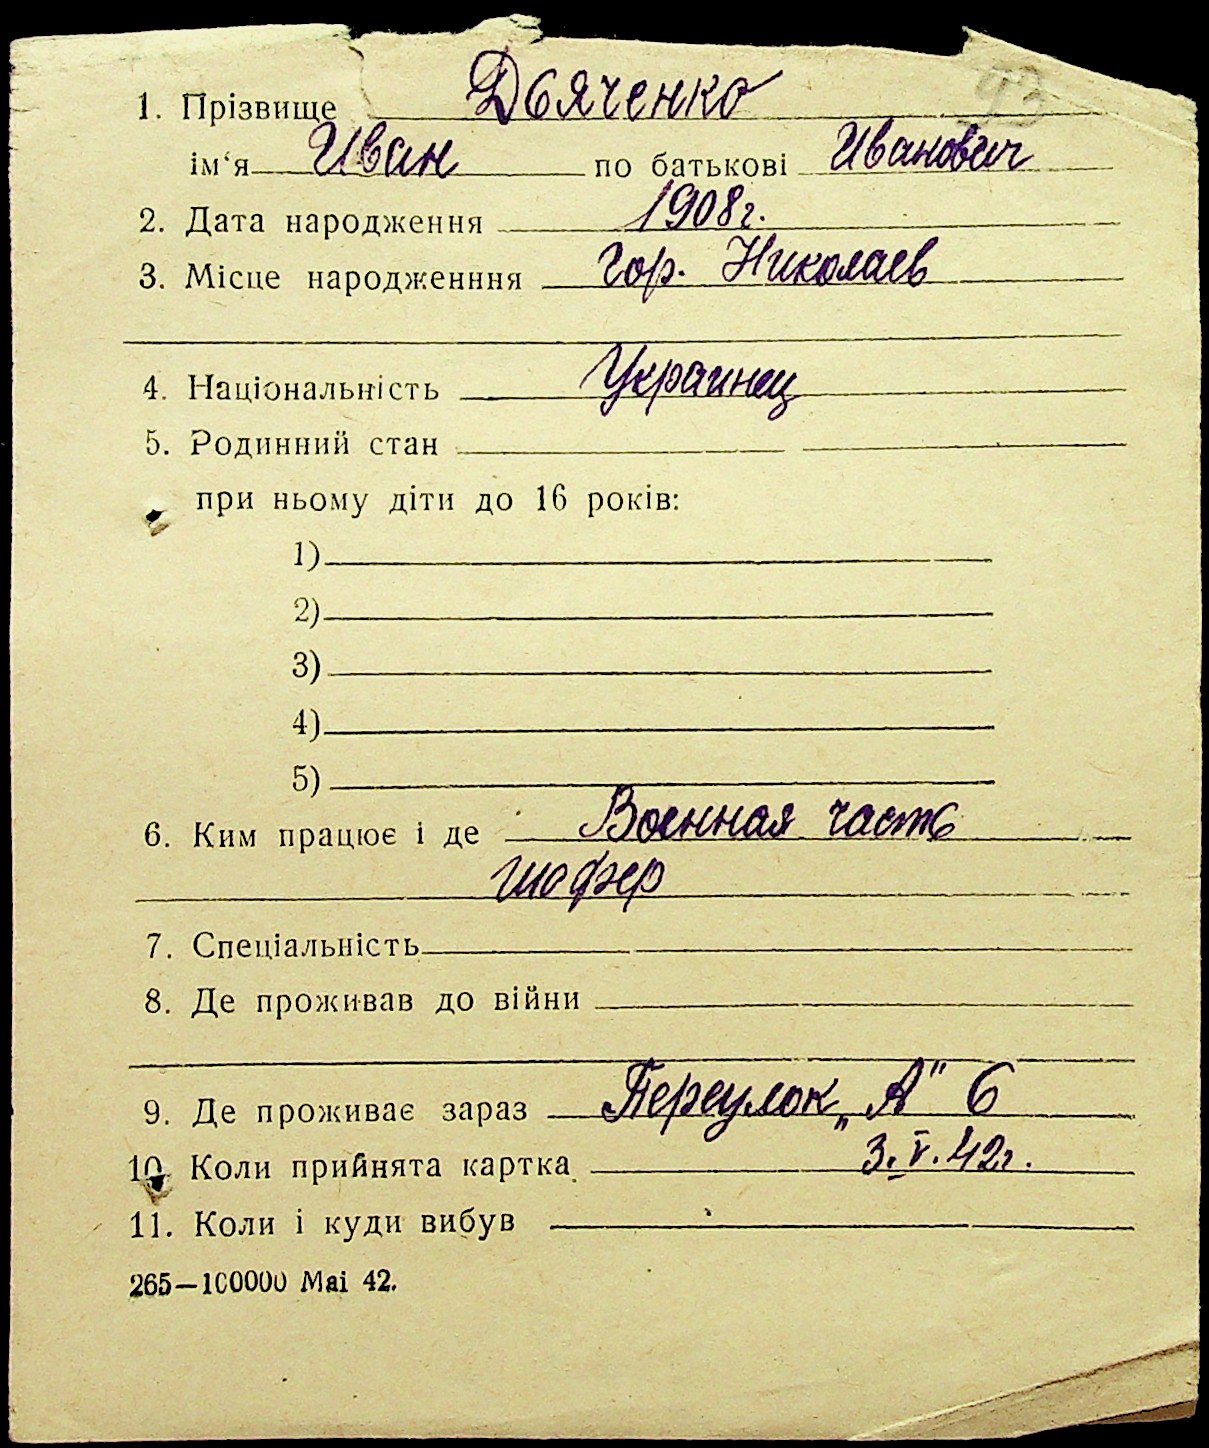 1. Прізвище Дьяченко
ім‘я Иван по батькові Иванович
2. Дата народження 1908г.
3. Місце народженння Гор. Николаев
4. Національність Украинец
5. Родинний стан
при ньому діти до 16 років:
1)
2)
3)
4)
5)
6. Ким працює і де Военная часть
шофер
7. Спеціальність
8. Де проживав до війни
9. Де проживає зараз Переулок „А" 6
10. Коли прийнята картка 3.V.42г.
11. Коли і куди вибув
265—100000 Mai 42.